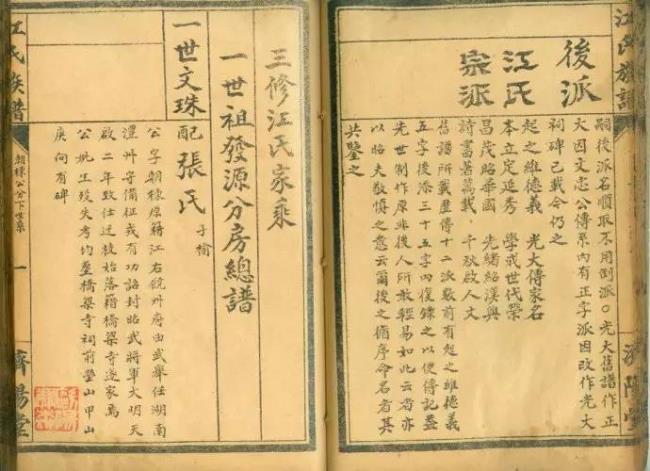 江氏族譜
濟陽堂
後派
江氏
宗派
嗣後派名順取不用倒派○光大舊譜作正
大因文忠公傳系內有正字派因改作光大
祠碑已載今仍之
起之維德義 光大傳家名
本立定延秀 學成世代榮
昌茂昭華國 先緒紹漢興
詩書著萬載 千秋啟人文
舊譜所載歷傳十二派最前有起之維德義
五字後添三十五字復錄之以便傳記盖
先世制作原非後人所敢輕易如此云者亦
以昭夫敬慎之意云爾後之循序命名者其
共鑒之
三修江氏家乘
一世祖發源分房總譜
一世文珠
配張氏 子榆
公字朝棟原籍江右饒州府由武舉任湖南
澧州守備征戎有功誥封昭武將軍大明天
啟二年致仕始落籍橋梁寺遂家焉
公妣生歿失考均塟橋梁寺祠前塋山甲山
庚向有碑
江氏族譜
朝棟公分下世系
一
濟陽堂